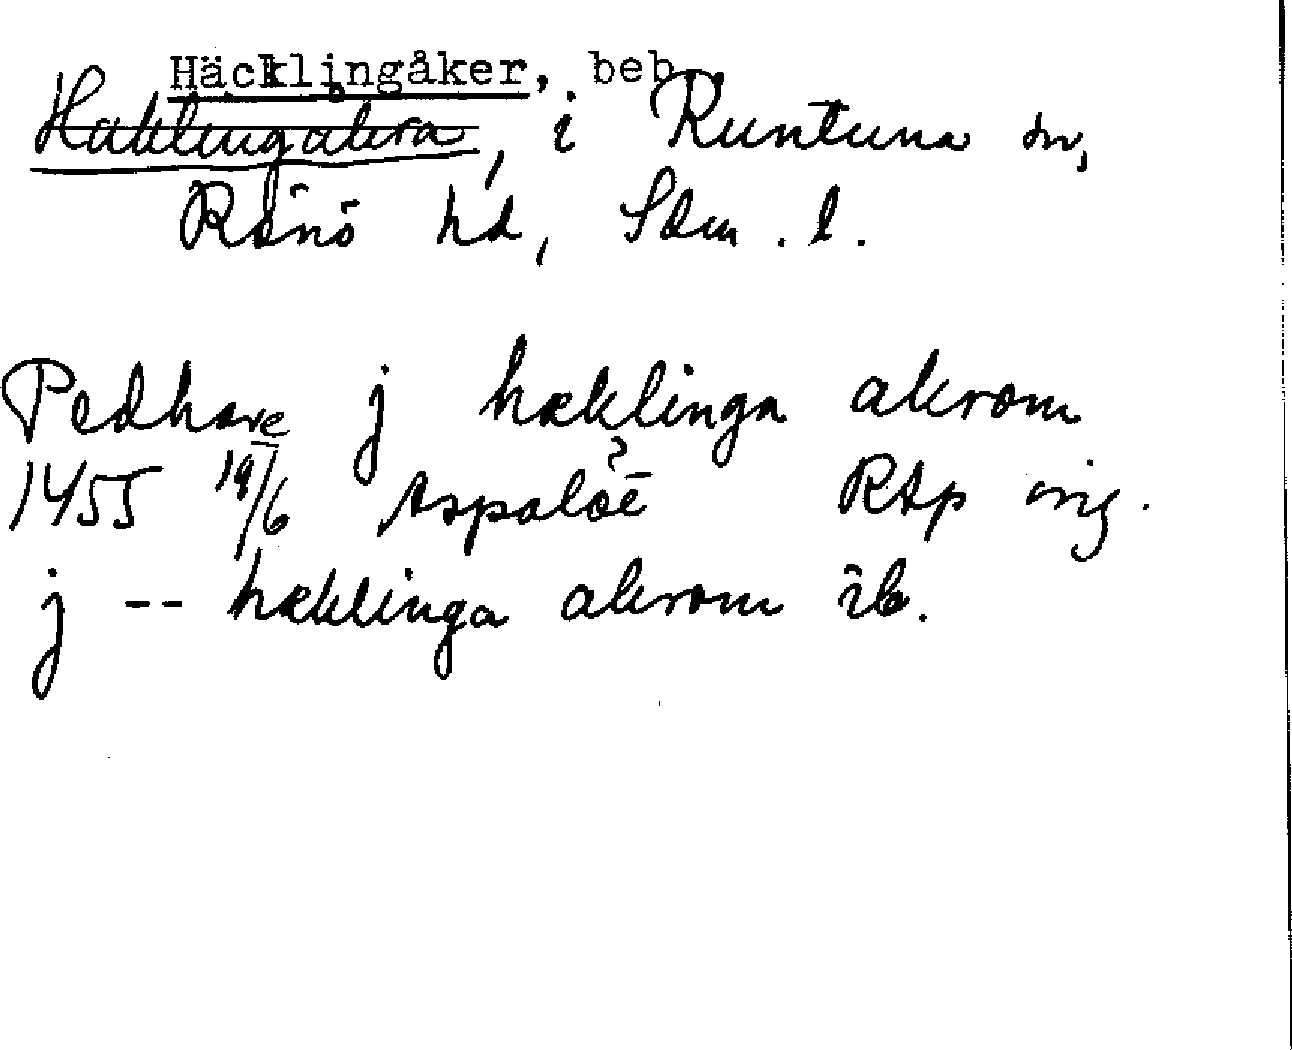 Häcklingåker, beb.
Häklingåkra, i Runtuna sn,
Rönö hd, Sdm. l.
Pedhare j hæklinga akrom
1455 19/6 Aspaløe ? RAp orig.
j -- hæklinga akrom ib.